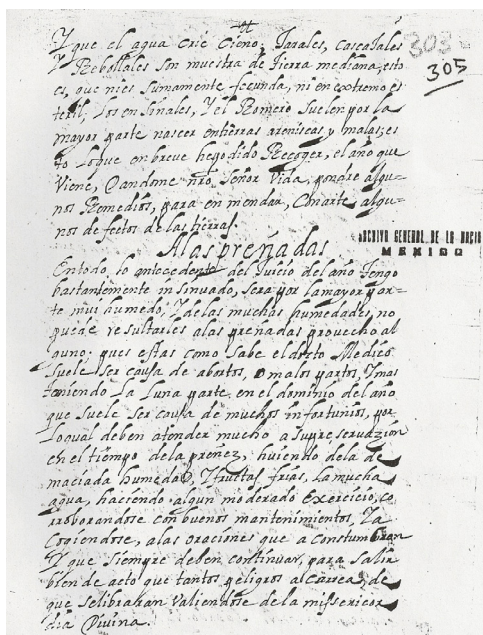 Y que el agua crie Cieno; Jarales, Cascajales
Y Rebollales son muestra de tierra mediana, esto
es, que ni es sumamente fecunda, ni en extremo es
teril, Los ensinales, Y el Romero suelen por la
mayor parte nascer en tierras areniscas y malas; es
to loque en breve he podido Recoger, el año que
Viene, Dandome nrô Señor Vida, pondre algu-
nos Remedios, para enmendar, Con arte algu-
nos defectos de las tierras.
303
305
ARCHIVO GENERAL DE LA NACIO
MEXICO
A las preñadas
En todo lo antecedente del Juicio del año tengo
bastantemente insinuado, sera por la mayor par-
te mui humedo, Y delas muchas humedades, no
puede resultarles a las preñadas provecho al
guno; pues estas como sabe el docto Medico
suele ser causa de abortos, o malos partos, Y mas
teniendo la Luna parte en el dominio del año
que suele ser causa de muchos infortunios, por
loqual deben atender mucho a su preservazion
en el tiempo dela preñez, huiendo dela de
maciada humedad, Y frutas frias, la mucha
agua, haciendo algun moderado Exercicio, co
rroborandose con buenos mantenimientos, Y a
Cogiendose, a las oraciones que acostumbran
Y que siempre deben continuar, para salir
bien de acto que tantos peligros alcarrea, de
que se libraran valiendose de la misericor
dia Divina.